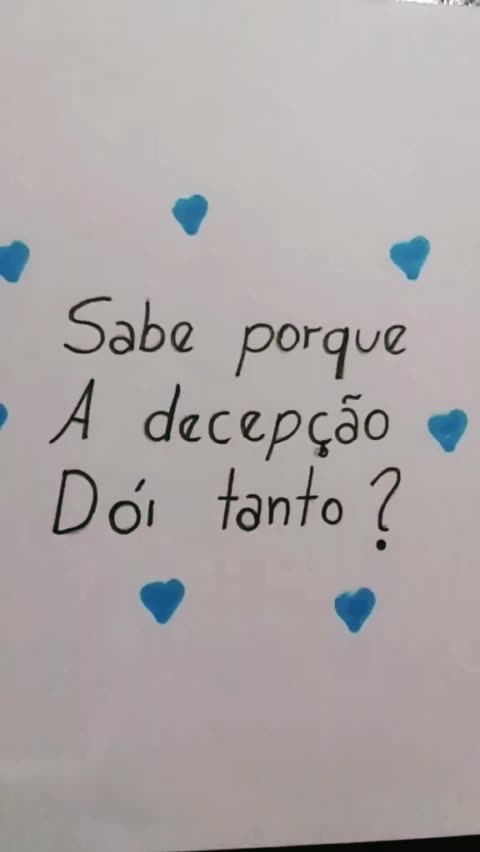 Sabe porque
A decepção
Dói tanto?